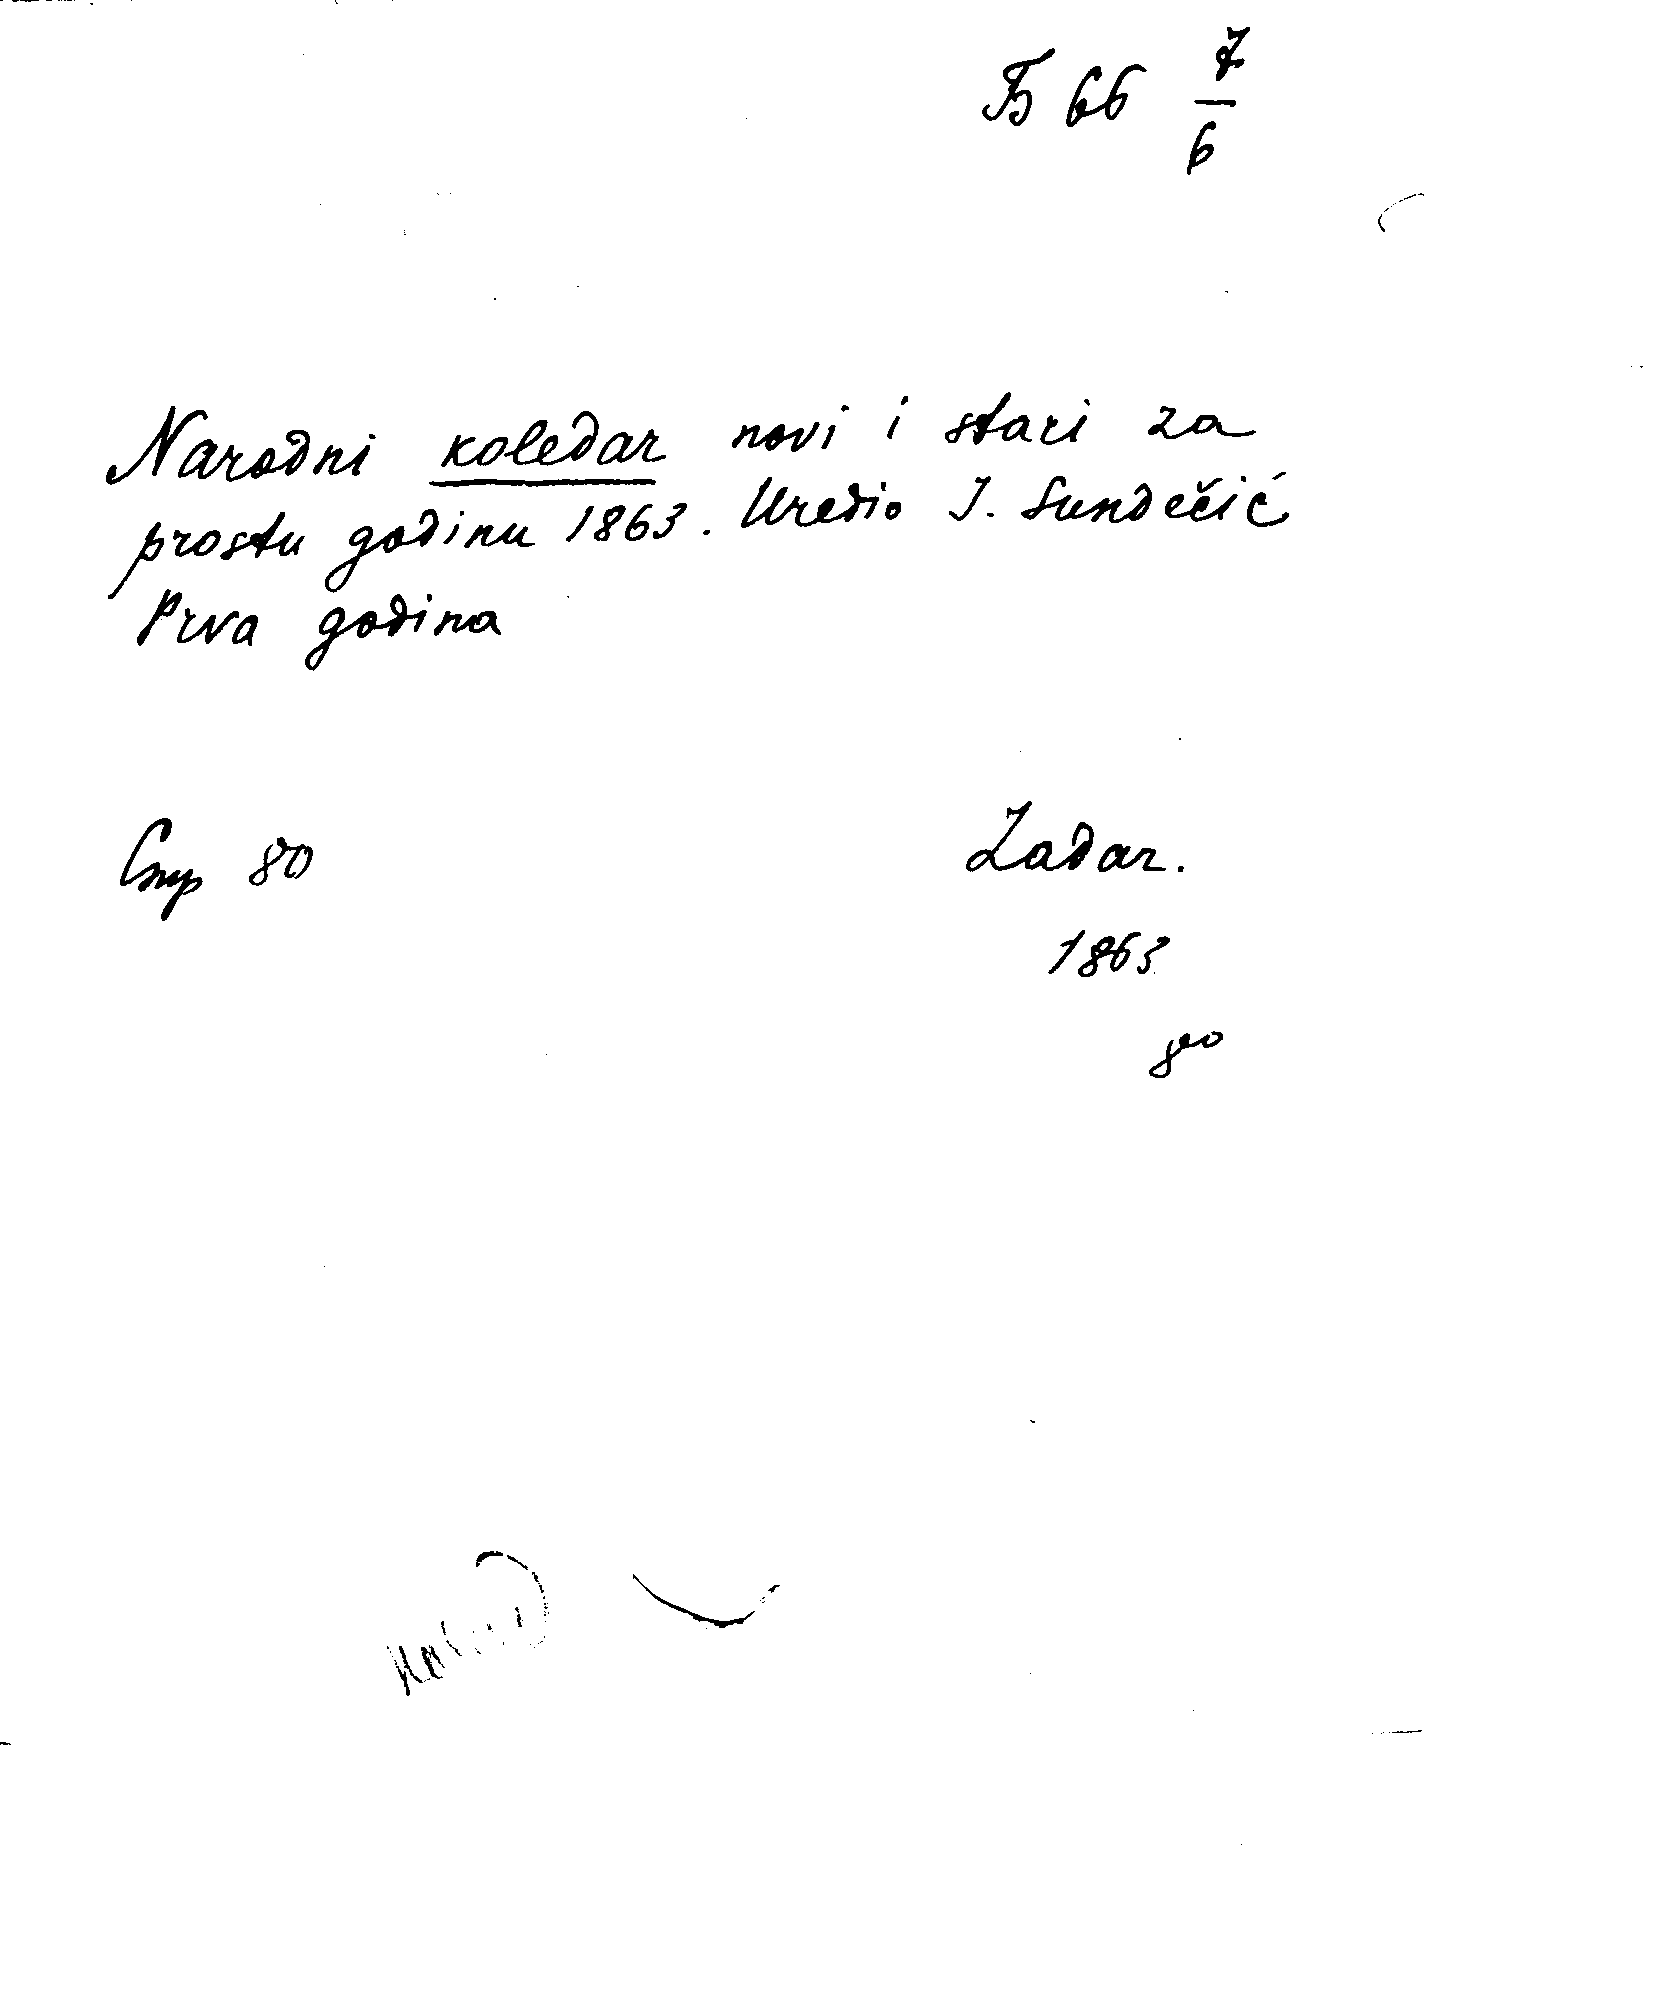 Б 66 7/6
Narodni koledar novi i stari za
prostu godinu 1863. Uredio J. Sundečić
Prva godina
Стр 80
Zadar.
1863
8vo